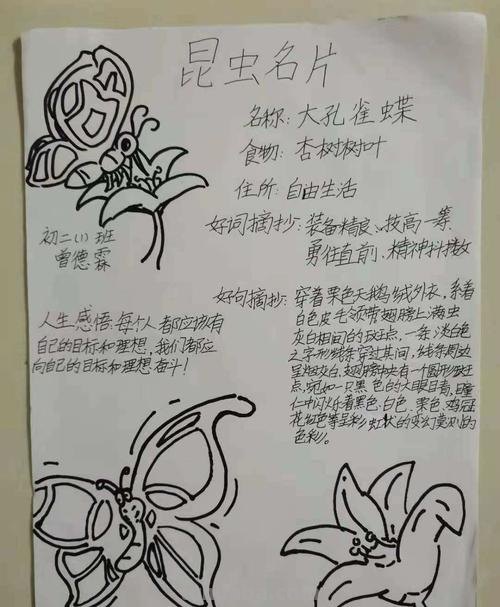 昆虫名片
名称: 大孔雀蝶
食物: 杏树树叶
住所: 自由生活
初二(1)班
曾德霖
好词摘抄: 装备精良、技高一筹
勇往直前、精神抖擞
人生感悟: 每个人都应该有
自己的目标和理想, 我们都应
向自己的目标和理想奋斗!
好句摘抄: 穿着栗色天鹅绒外衣, 系着
白色皮毛领带, 翅膀上满是
灰白相间的斑点, 一条淡白色
之字形线条穿过其间, 线条周边
呈烟灰白, 翅膀中央有一个圆形斑
点, 宛如一只黑色的大眼睛, 瞳
仁中闪烁着黑色、白色、栗色、鸡冠
花红色等呈彩虹状的变幻莫测的
色彩。